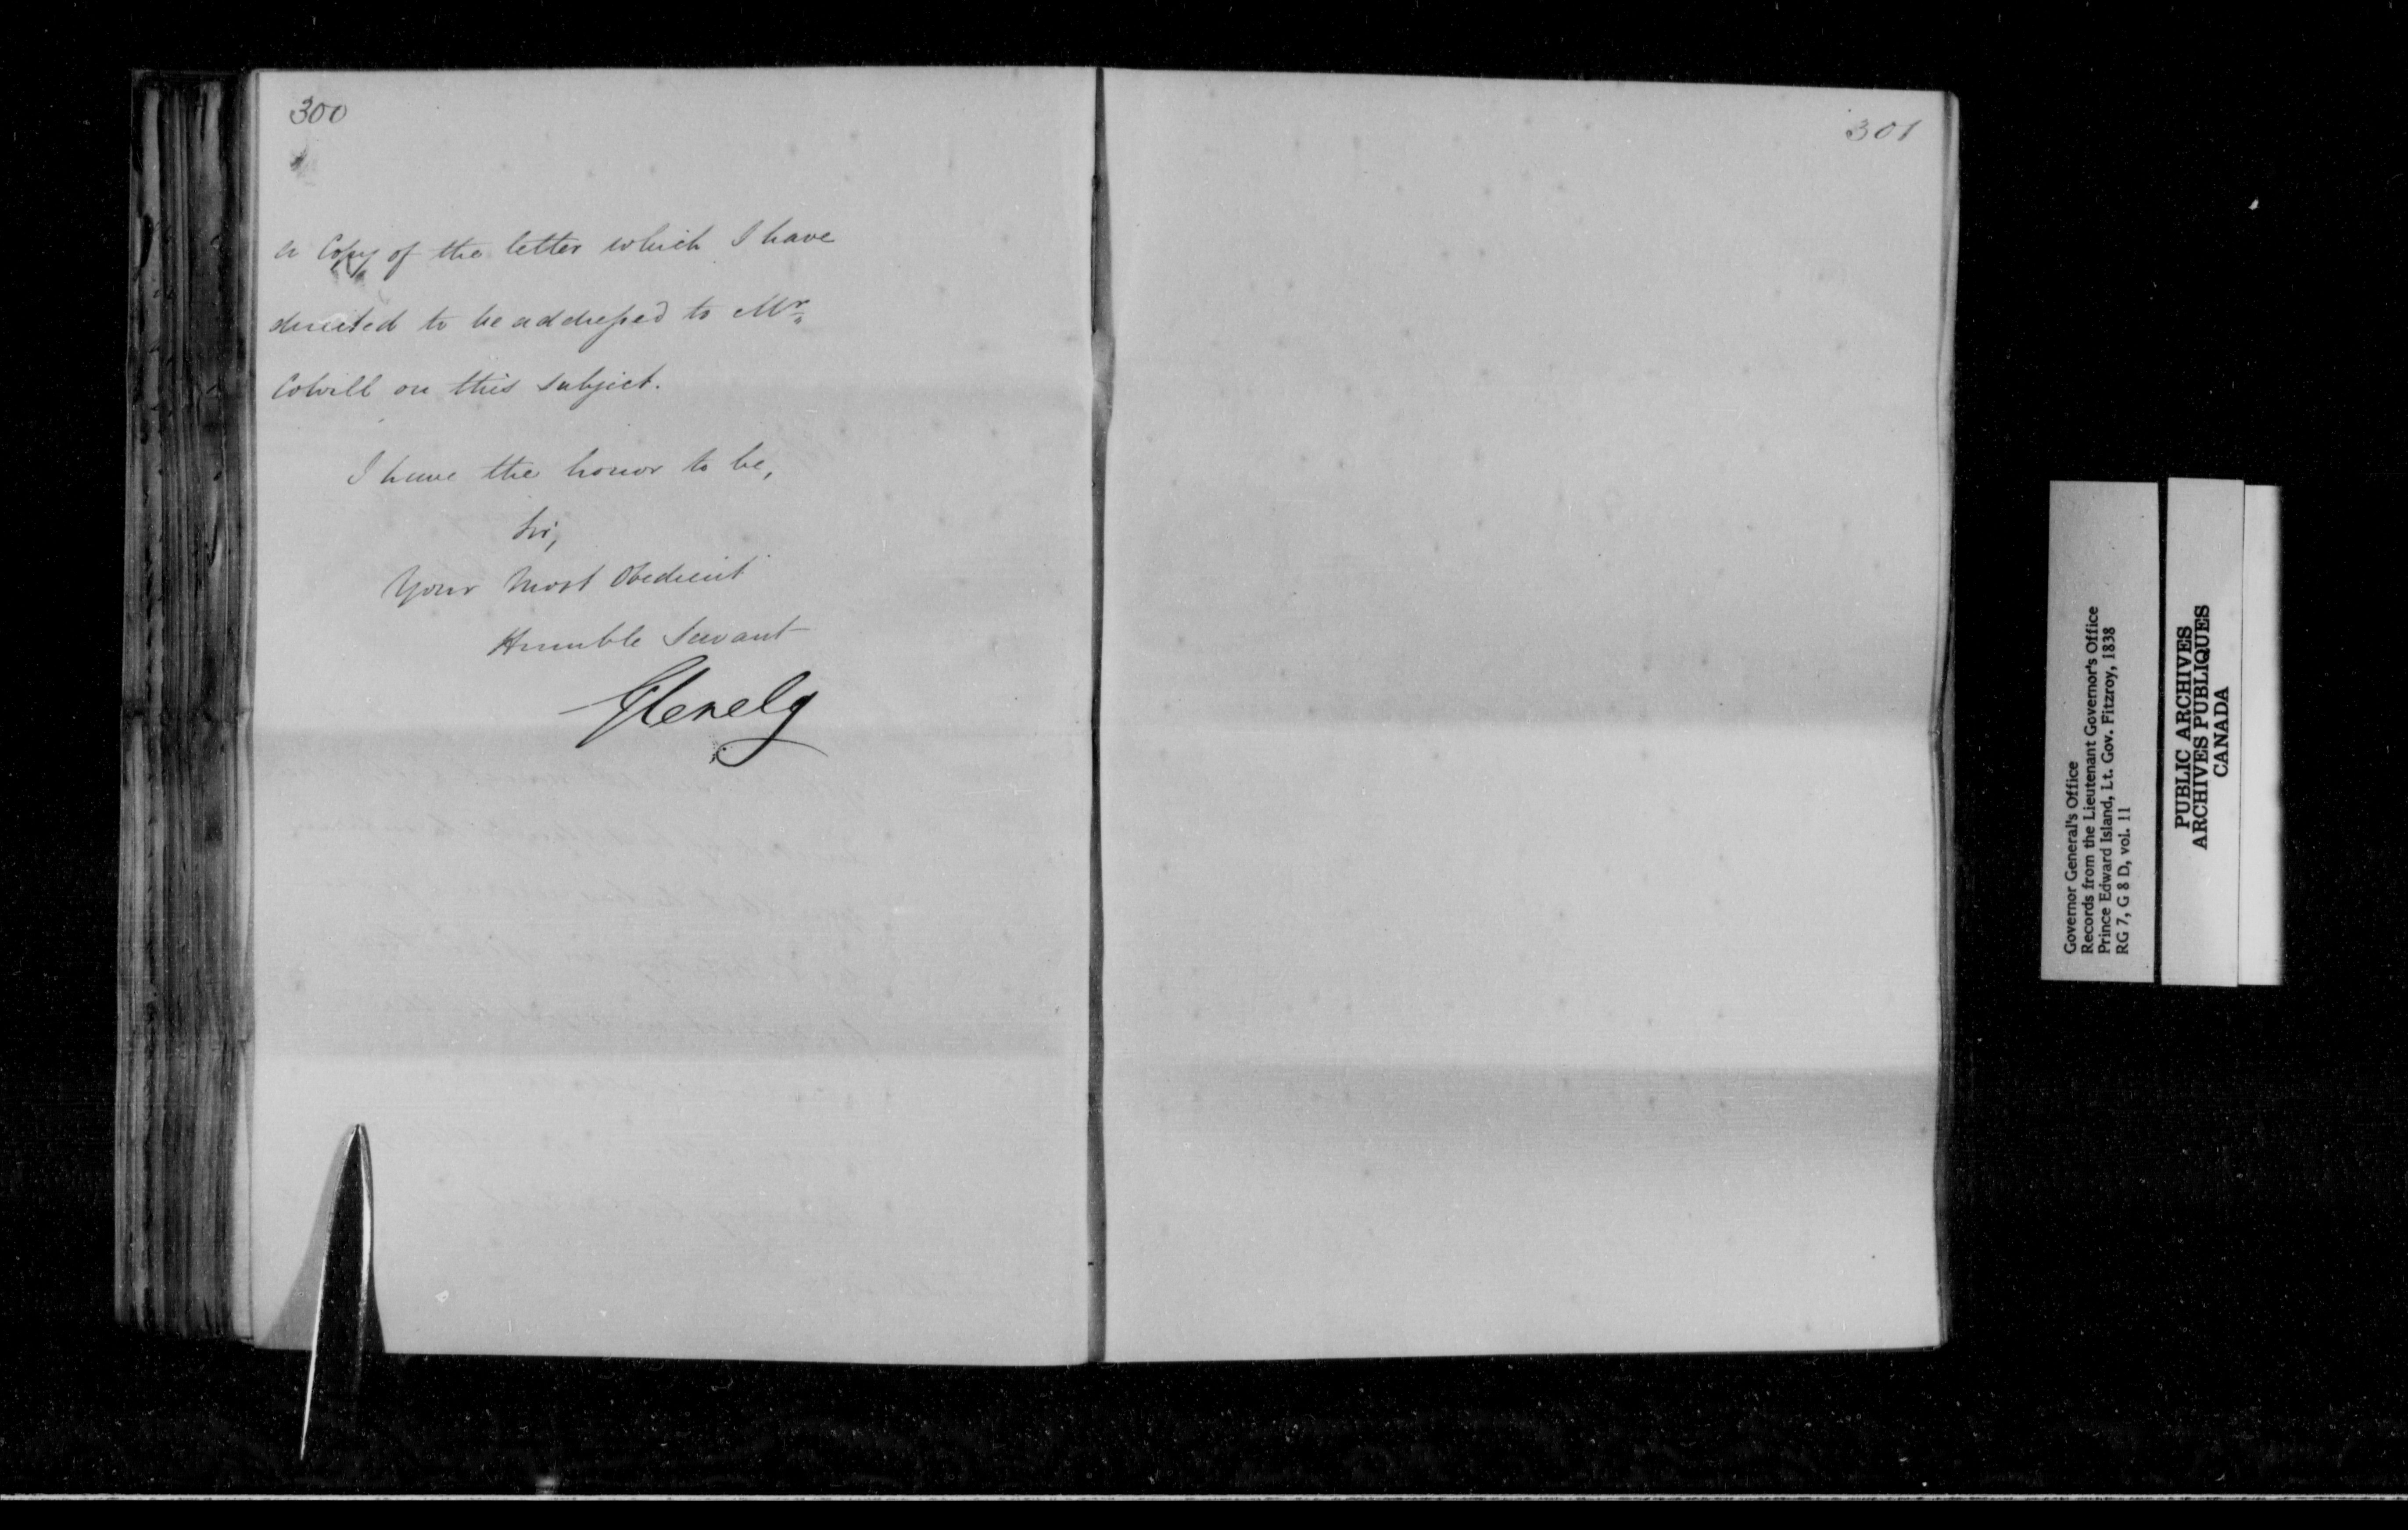 300
a Copy of the letter which I have
directed to be addressed to Mr.
Colvill on this subject.
I have the honor to be,
Sir,
Your Most Obedient
Humble Servant
Glenelg
301
Governor General's Office
Records from the Lieutenant Governor's Office
Prince Edward Island, Lt. Gov. Fitzroy, 1838
RG 7, G 8 D, vol. 11
PUBLIC ARCHIVES
ARCHIVES PUBLIQUES
CANADA